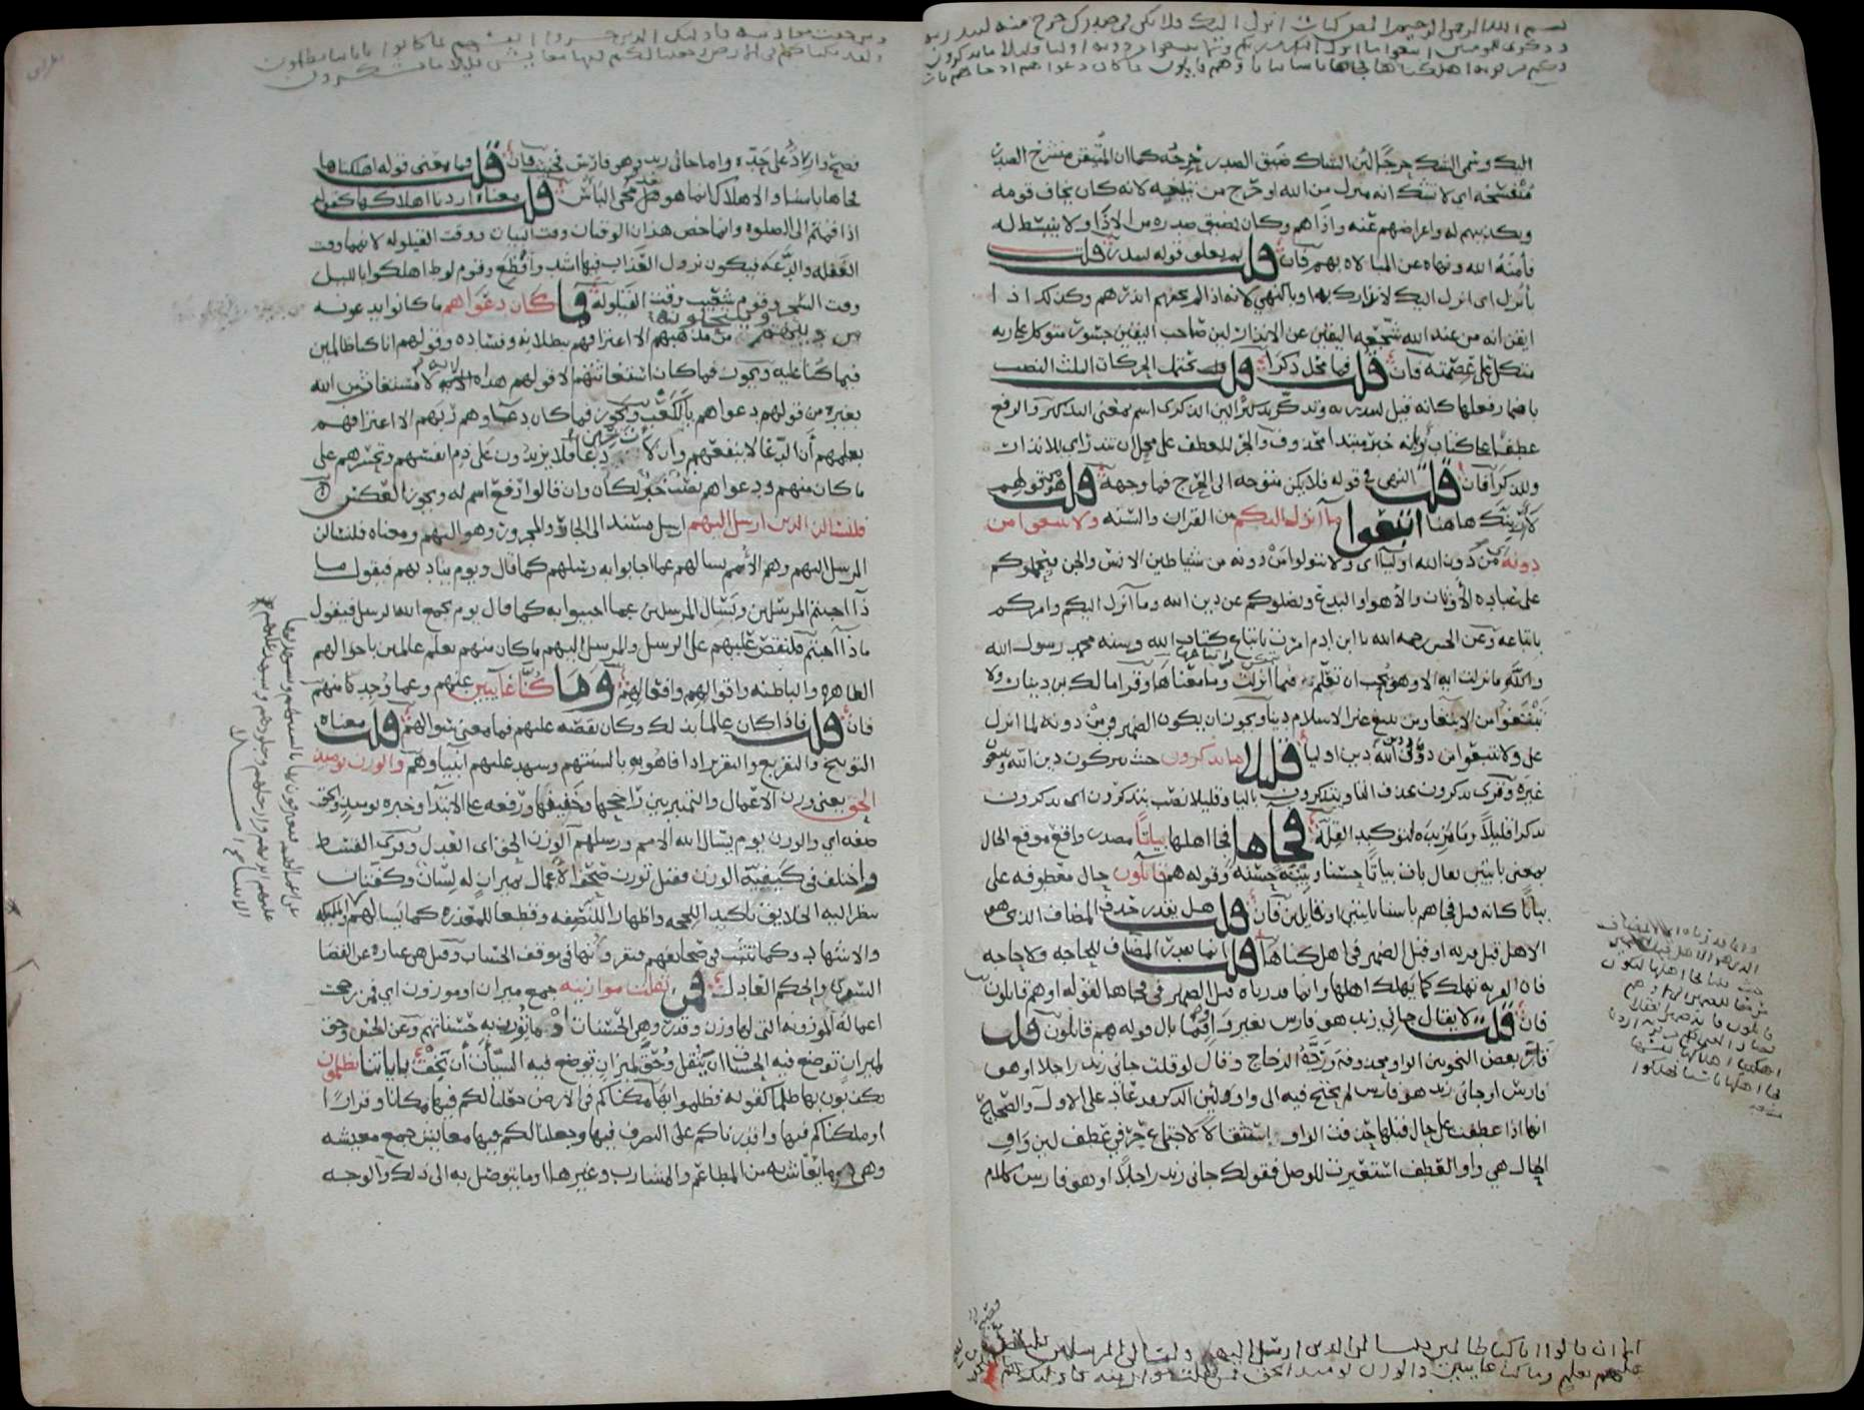 بسم الله الرحمن الرحيم المص كتاب انزل اليك فلا يكن في صدرك حرج منه لتنذر به
وذكرى للمومنين اتبعوا ما انزل اليكم من ربكم ولا تتبعوا من دونه اوليا قليلا ما تذكرون
وكم من قرية اهلكناها فجاها باسنا بياتا او هم قايلون فما كان دعواهم اذ جاهم باسنا
اليك وسمى الشك حرجا لان الشاك ضيق الصدر حرجه كما ان المتيقن منشرح الصدر
منفسحه اى لا تشك انه منزل من الله او حرج من تبليغه لانه كان يخاف قومه
وتكذيبهم له واعراضهم عنه واذاهم وكان يضيق صدره من الاذا ولا ينبسط له
فامنه الله ونهاه عن المبالاة بهم فان قلت بم يعلق قوله لتنذر قلت
بانزل اى انزل اليك لانذارك به او بالنهي لانه اذا لم يخفهم انذرهم وكذلك اذا
ايقن انه من عند الله شجعه اليقين على الانذار لان صاحب اليقين جسور متوكل على ربه
متكل على عصمته فان قلت فما محل ذكرى قلت يحتمل الحركات الثلث النصب
باضمار فعلها كانه قيل لتنذر به وتذكر تذكيرا لان الذكرى اسم بمعنى التذكير والرفع
عطفا على كتاب او بانه خبر مبتدا محذوف والجر للعطف على محل ان تنذر اى للانذار
وللذكرى فان قلت النهي في قوله فلا يكن متوجه الى الحرج فما وجهه قلت هو كقولهم
لا ارينك هاهنا اتبعوا ما انزل اليكم من القران والسنه ولا تتبعوا من
دونه من دون الله اوليا اى ولا تتولوا من دونه من شياطين الانس والجن فيحملوكم
على عباده الاوثان والاهوا والبدع ويضلوكم عن دين الله وما انزل اليكم وامركم
باتباعه وعن الحسن رحمه الله يا ابن ادم امرت باتباع كتاب الله وسنه محمد رسول الله
والله ما نزلت ايه الا وهو يحب ان تعلم فيما انزلت وما معناها وقرا مالك بن دينار ولا
تبتغوا من الابتغا ومن يبتغ غير الاسلام دينا ويجوز ان يكون الضمير في من دونه لما انزل
على ولا تتبعوا من دون دين الله دين اوليا قليلا ما تذكرون حيث تتركون دين الله وتتبعون
غيره وقرى تذكرون بحذف التا ويتذكرون باليا وقليلا نصب بتذكرون اى تذكرون
تذكرا قليلا وما مزيده لتوكيد القله فجاها فجا اهلها بياتا مصدر واقع موقع الحال
بمعنى بايتين يقال بات بياتا حسنا وبيته حسنه وقوله هم قايلون حال معطوفه على
بياتا كانه قيل فجاهم باسنا بايتين او قايلين فان قلت هل يقدر حذف المضاف الذى هو
الاهل قبل قريه او قبل الضمير في اهلكناها قلت انما يقدر المضاف للحاجه ولا حاجه
فان القريه تهلك كما يهلك اهلها وانما قدرناه قبل الضمير في فجاها لقوله او هم قايلون
فان قلت لا يقال جاني زيد هو فارس بغير واو فما بال قوله هم قايلون قلت
قدر بعض النحويين الواو محذوفه ورده الزجاج وقال لو قلت جاني زيد راجلا او هو
فارس او جاني زيد هو فارس لم يحتج فيه الى واو لان الذكر قد عاد على الاول والصحيح
انها اذا عطفت على حال قبلها حذفت الواو استثقالا لاجتماع حرفي عطف لان واو
الحال هي واو العطف استعيرت للوصل فقولك جاني زيد راجلا او هو فارس كلام
الا ان قالوا انا كنا ظالمين فلنسالن الذين ارسل اليهم ولنسالن المرسلين فلنقصن
عليهم بعلم وما كنا غايبين والوزن يوميذ الحق فمن ثقلت موازينه فاوليك هم
ومن خفت موازينه فاوليك الذين خسروا انفسهم بما كانوا باياتنا يظلمون
ولقد مكناكم في الارض وجعلنا لكم فيها معايش قليلا ما تشكرون
فصيح وارد على حده واما جاني زيد هو فارس فخبيث فان قلت فما معنى قوله اهلكناها
فجاها باسنا والاهلاك انما هو قبل مجى الباس قلت معناه اردنا اهلاكها كقوله
اذا قمتم الى الصلوه وانما خص هذان الوقتان وقت البيات ووقت القيلوله لانهما وقت
الغفله والدعه فيكون نزول العذاب فيهما اشد وافظع وقوم لوط اهلكوا بالليل
وقت السحر وقوم شعيب وقت القيلوله فما كان دعواهم ما كانوا يدعونه
من دينهم وينتحلونه من مذهبهم الا اعترافهم ببطلانه وفساده وقولهم انا كنا ظالمين
فيما كنا عليه ويجوز فما كان استغاثتهم الا قولهم هذا لانه لا مستغاث من الله
بغيره من قولهم دعواهم يا لكعب ويجوز فما كان دعواهم ربهم الا اعترافهم
بعلمهم ان الدعا لا ينفعهم وان لات حين دعا فلا يزيدون على ذم انفسهم وتحسرهم على
ما كان منهم ودعواهم نصب خبر لكان وان قالوا رفع اسم له ويجوز العكس
فلنسالن الذين ارسل اليهم ارسل مسند الى الجار والمجرور وهو اليهم ومعناه فلنسالن
المرسل اليهم وهم الامم يسالهم عما اجابوا به رسلهم كما قال ويوم يناديهم فيقول ما
ذا اجبتم المرسلين ونسال المرسلين عما اجيبوا به كما قال يوم يجمع الله الرسل فيقول
ماذا اجبتم فلنقصن عليهم على الرسل والمرسل اليهم ما كان منهم بعلم عالمين باحوالهم
الظاهره والباطنه واقوالهم وافعالهم وما كنا غايبين عنهم وعما وجد منهم
فان قلت فاذا كان عالما بذلك وكان يقصه عليهم فما معنى سوالهم قلت معناه
التوبيخ والتقريع والتقرير اذا فاهوا به بالسنتهم وشهد عليهم انبياوهم والوزن يوميذ
الحق يعنى وزن الاعمال والتمييز بين راجحها وخفيفها ورفعه على الابتدا وخبره يوميذ والحق
صفه اي والوزن يوم يسال الله الامم ورسلهم الوزن الحق اى العدل وقرى القسط
واختلف في كيفيه الوزن فقيل توزن صحف الاعمال بميزان له لسان وكفتان
ينظر اليه الخلايق تاكيدا للحجه واظهارا للنصفه وقطعا للمعذره كما يسالهم
والاشهاد وكما تثبت في صحايفهم فيقرونها في موقف الحساب وقيل هي عباره عن القضا
السوى والحكم العادل فمن ثقلت موازينه جمع ميزان او موزون اي فمن رجحت
اعماله الموزونه التي لها وزن وقدر وهي الحسنات او ما توزن به حسناتهم وعن الحسن وحق
لميزان توضع فيه الحسنات ان يثقل وحق لميزان توضع فيه السيات ان يخف باياتنا يظلمون
يكذبون بها ظلما كقوله فظلموا بها مكناكم في الارض جعلنا لكم فيها مكانا وقرارا
او ملكناكم فيها واقدرناكم على التصرف فيها وجعلنا لكم فيها معايش جمع معيشه
وهي ما يعاش به من المطاعم والمشارب وغيرها او ما يتوصل به الى ذلك والوجه